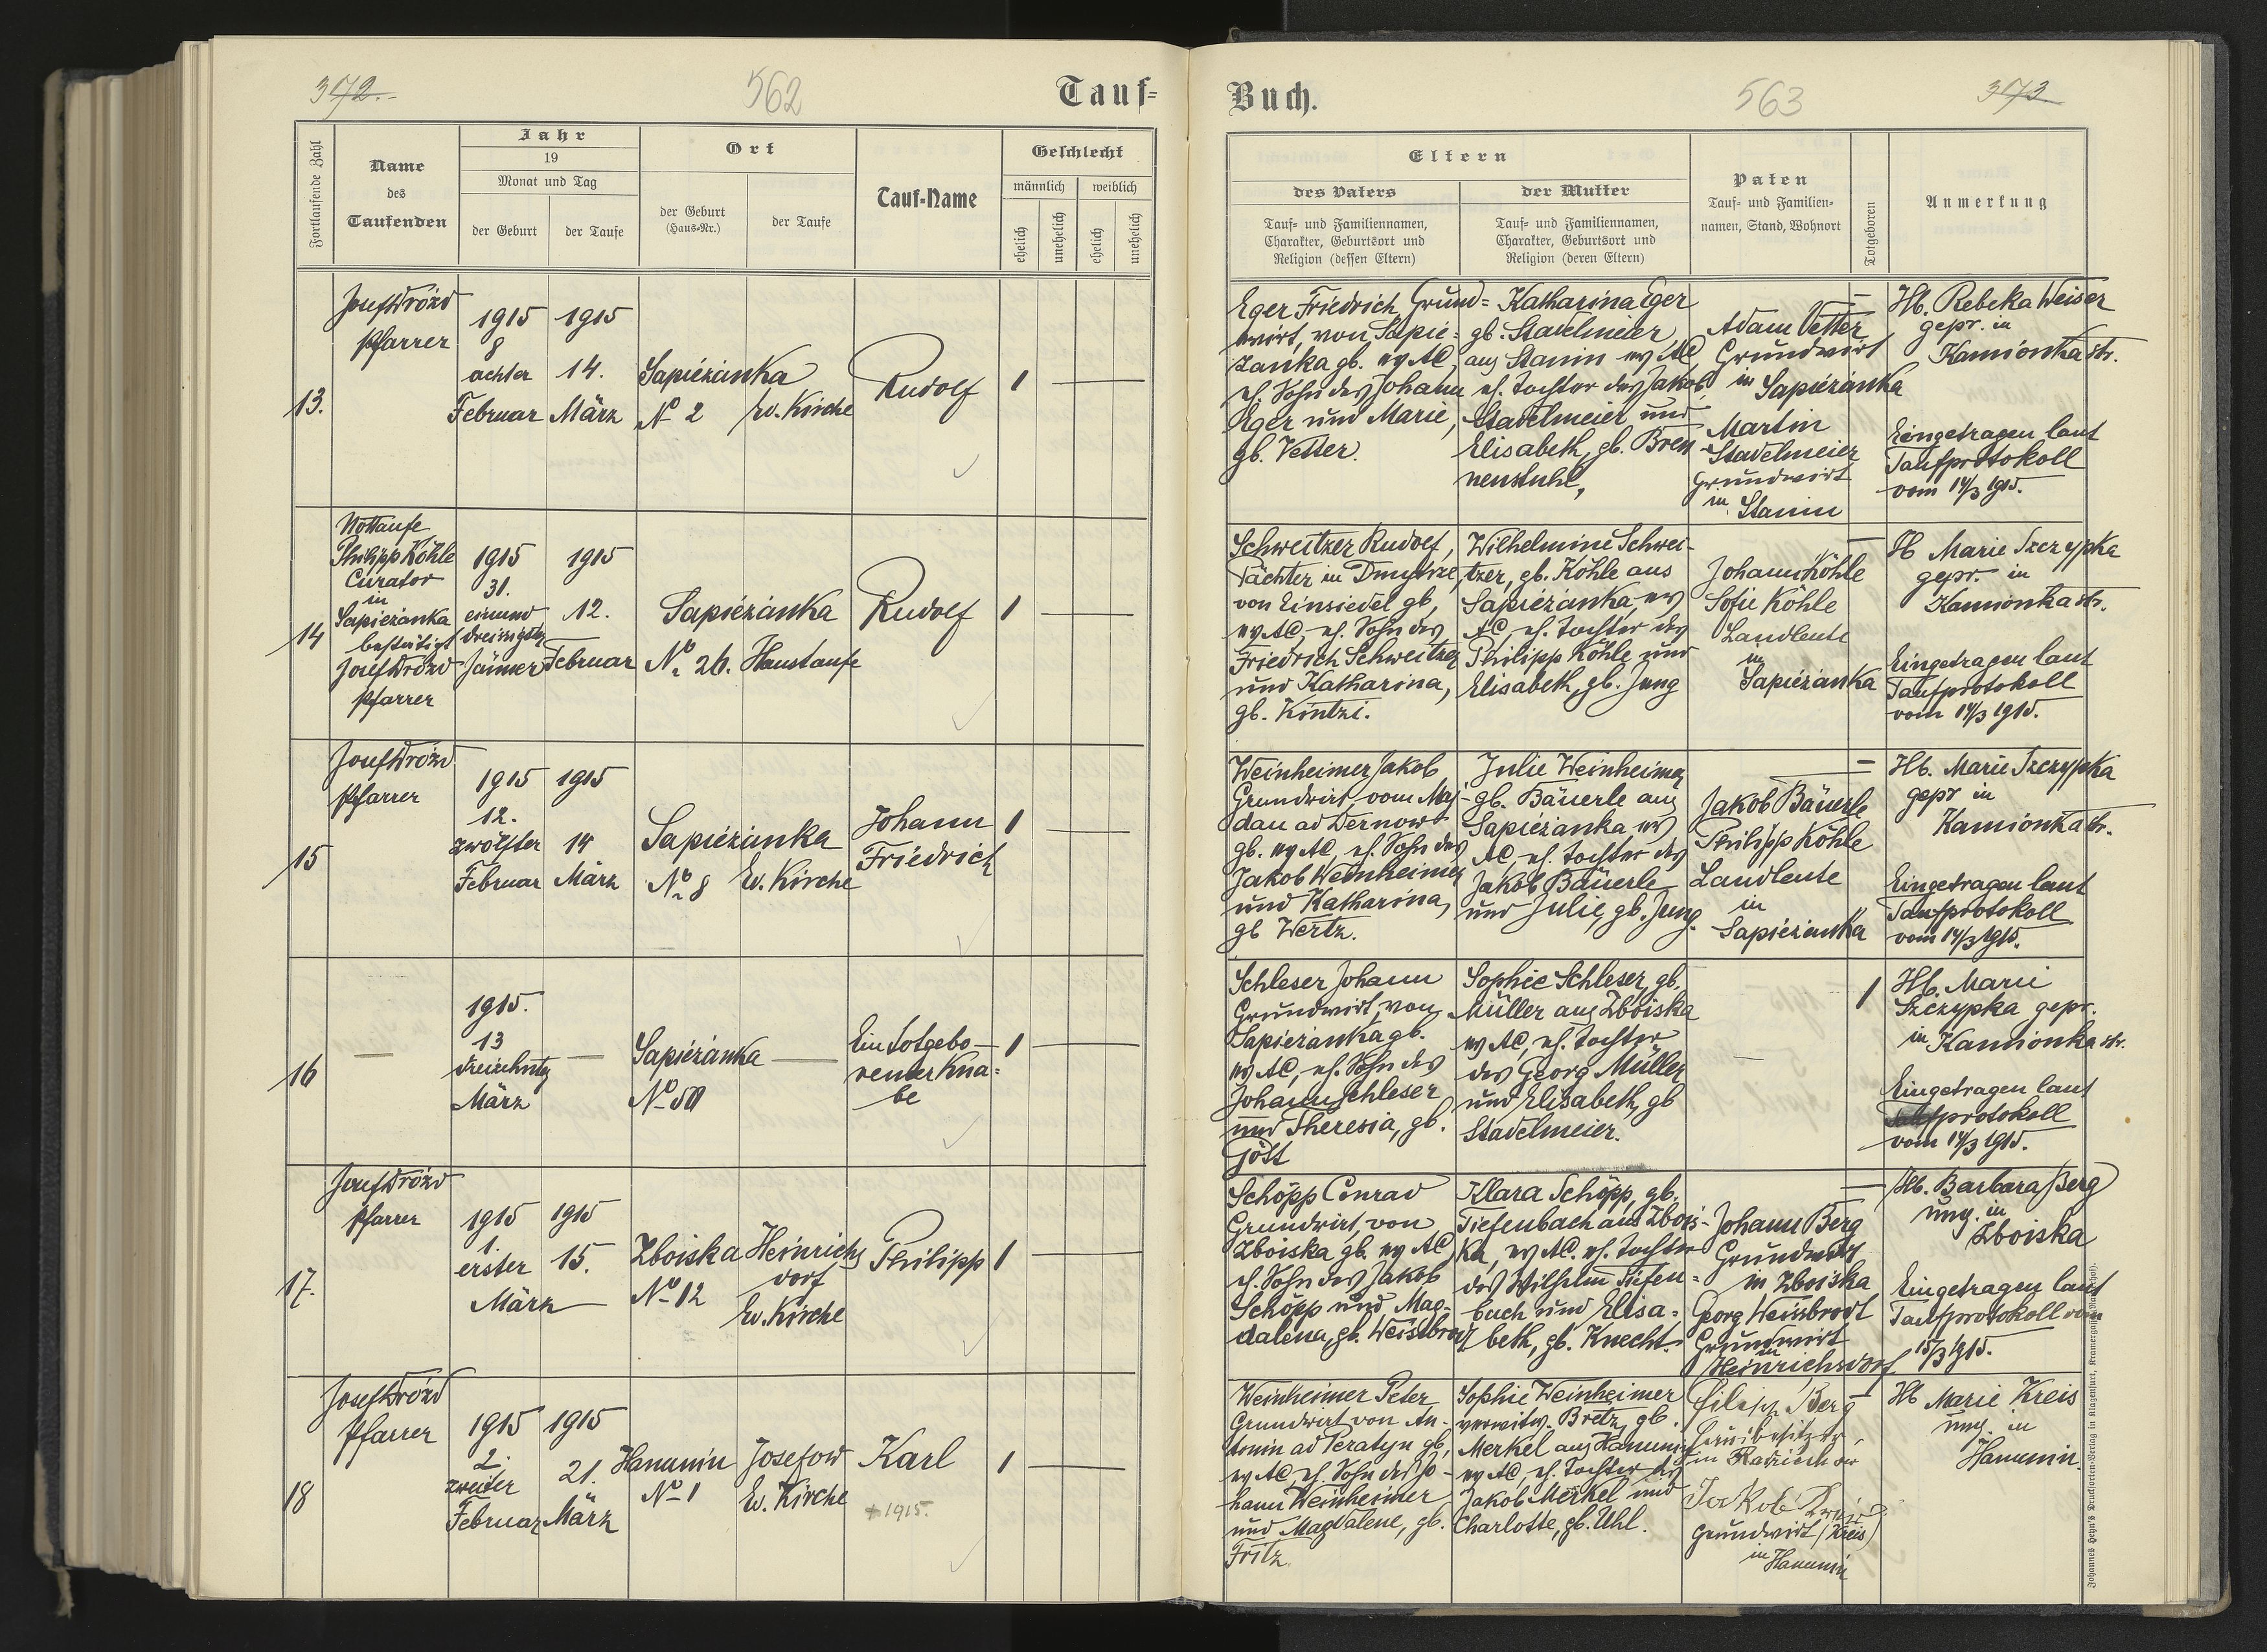 372.
562
Tauf=
Fortlaufende Zahl
Name
des
Taufenden
Jahr
19
Monat und Tag
der Geburt
der Taufe
Ort
der Geburt
(Haus-Nr.)
der Taufe
Tauf-Name
Geschlecht
männlich
weiblich
ehelich
unehelich
ehelich
unehelich
13.
Josef Drózd
Pfarrer
1915
8
achter
Februar
1915
14.
März
Sapiezanka
No 2
Ev. Kirche
Rudolf
1
14
Nottaufe
Philipp Köhle
Curator
in
Sapiezanka
bestätigt
Josef Drózd
Pfarrer
1915
31.
einund
dreissigster
Jänner
1915
12.
Februar
Sapiezanka
No 26.
Haustaufe
Rudolf
1
15
Josef Drózd
Pfarrer
1915
12.
zwölfter
Februar
1915
14
März
Sapiezanka
No 8
Ev. Kirche
Johann
Friedrich
1
16
1915.
13
dreizehnter
März
Sapiezanka
No 50
Ein totgebo-
rener Kna=
be
1
17.
Josef Drózd
Pfarrer
1915
1.
erster
März
1915
15.
Zboiska
No 12
Heinrichs
dorf
Ev. Kirche
Philipp
1
18
Josef Drózd
Pfarrer
1915
2.
zweiter
Februar
1915
21.
März
Hanunin
No 1
Josefow
Ev. Kirche
Karl
+ 1915.
1
Buch.
563
373
Eltern
des Vaters
Tauf- und Familiennamen,
Charakter, Geburtsort und
Religion (dessen Eltern)
der Mutter
Tauf- und Familiennamen,
Charakter, Geburtsort und
Religion (deren Eltern)
Paten
Tauf- und Familien-
namen, Stand, Wohnort
Totgeboren
Anmerkung
Eger Friedrich Grund=
wirt, von Sapie=
zanka gb. ev AC,
eh. Sohn des Johann
Eger und Marie,
gb. Vetter.
Katharina Eger
gb. Stadelmeier,
aus Stanin ev AC
eh. Tochter des Jakob
Stadelmeier und
Elisabeth, gb. Bren
nenstuhl,
Adam Vetter
Grundwirt
in Sapiezanka
Martin
Stadelmeier
Grundwirt
in Stanin
Hb. Rebeka Weiser
gepr. in
Kamionka str.
Eingetragen laut
Taufprotokoll
vom 14/3 1915.
Schweitzer Rudolf,
Pächter in Dmytrze,
von Einsiedel gb,
ev AC, eh. Sohn des
Friedrich Schweitzer
und Katharina,
gb. Kintzi.
Wilhelmine Schwei-
tzer, gb. Köhle aus
Sapiezanka, ev
AC, eh. Tochter des
Philipp Köhle und
Elisabeth, gb. Jung
Johann Köhle
Sofie Köhle
Landleute
in
Sapiezanka
Hb Marie Szczypka
gepr. in
Kamionka str.
Eingetragen laut
Taufprotokoll
vom 14/3 1915.
Weinheimer Jakob
Grundwirt, vom Maj-
dan ad Dernow
gb. ev AC, eh. Sohn des
Jakob Weinheimer
und Katharina,
gb Wertz.
Julie Weinheimer
gb. Bäuerle aus
Sapiezanka ev
AC, eh. Tochter des
Jakob Bäuerle
und Julie, gb. Jung.
Jakob Bäuerle
Philipp Köhle
Landleute
in
Sapiezanka
Hb. Marie Szczypka
gepr in
Kamionka str.
Eingetragen laut
Taufprotokoll
vom 14/3 1915.
Schleser Johann
Grundwirt, von
Sapiezanka gb.
ev AC, eh. Sohn des
Johann Schleser
und Theresia, gb.
Jöst
Sophie Schleser, gb.
Müller aus Zboiska
ev AC, eh. Tochter
des Georg Müller
und Elisabeth, gb
Stadelmeier.
1
Hb. Marie
Szczypka gepr.
in Kamionka str.
Eingetragen laut
Taufprotokoll
vom 14/3 1915.
Schöpp Conrad
Grundwirt, von
Zboiska gb. ev AC,
eh. Sohn des Jakob
Schöpp und Mag-
dalena, gb. Weissbrod
Klara Schöpp, gb.
Tiefenbach aus Zbois-
ka, ev AC. eh. Tochter
des Wilhelm Tiefen=
bach und Elisa=
beth, gb. Knecht.
Johann Berg
Grundwirt
in Zboiska
Georg Weissbrodt
Grundwirt
in
Heinrichsdorf
Hb. Barbara Berg
ung. in
Zboiska
Eingetragen laut
Taufprotokoll vom
15/3 1915.
Weinheimer Peter
Grundwirt von An-
tonin ad Peratyn gb,
ev AC, eh. Sohn des Jo-
hann Weinheimer
und Magdalene, gb.
Fritz
Sophie Weinheimer
verwitw. Bretz, gb.
Merkel aus Hanunin
ev AC, eh. Tochter des
Jakob Merkel und
Charlotte, gb. Uhl.
Filipp Berg
in Radziechow
Jakob
Grundwirt (Kreis)
in Hanunin
Hb Marie Kreis
ung. in
Hanunin.
Johannes Heyn's Drucksorten-Verlag in Klagenfurt, Kramergasse